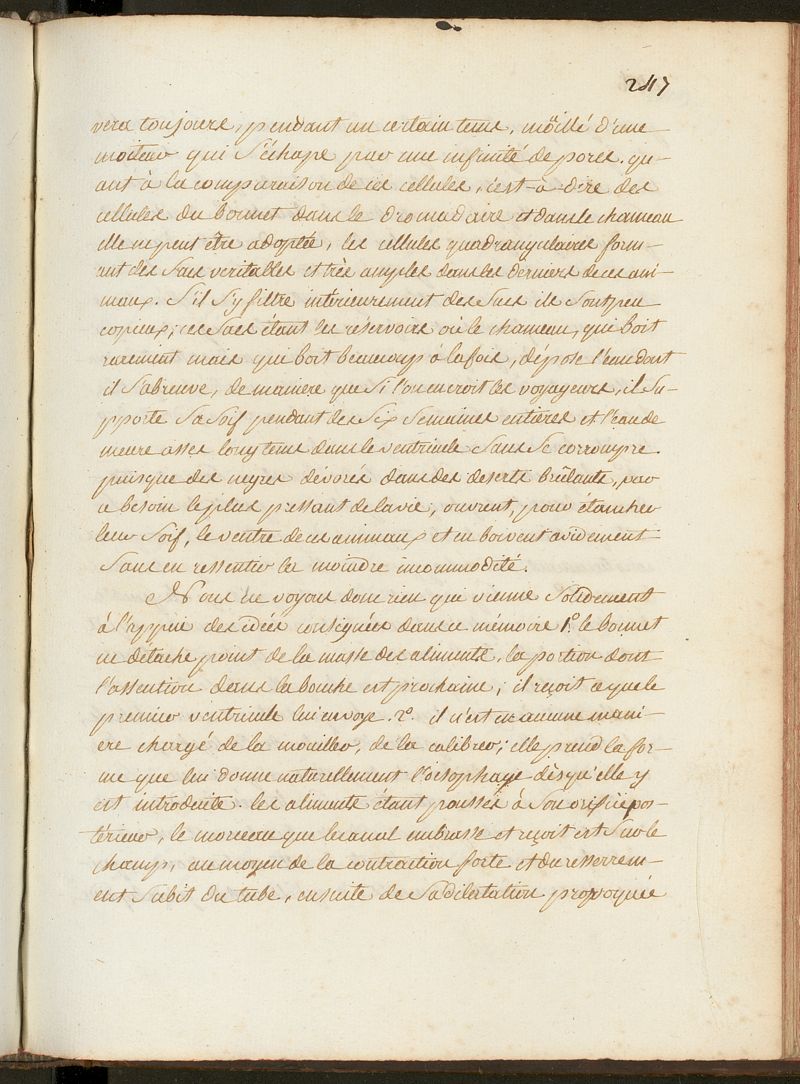 247
vera toujours, pendant un certain tems, möillé d'une
moiteur qui S'échape par une infinité de pores. qu-
ant à la comparaison de ces cellules, c'est-à-dire des
cellules du bonnet dans le dromadaire et dans le chameau
elle ne peut être adoptée, les cellules quadrangulaires form-
ant des Sacs veritables et très amples dans les derniers de ces ani-
maux. S'il S'y filtre intérieurement des Sucs ils Sont peu
copieux; ces Sacs étant les réservoirs où le chameau, qui boit
rarement mais qui boit beaucoup à la fois, dépose l'eau dont
il S'abreuve, de maniere que Si l'on en croit les voyageurs, il Su-
pporte Sa Soif pendant des Six Semaines entières et l'eau de
meure assés longtems dans le ventricule Sans Se corrompre.
puisque des negres dévorés dans des deserts brûlants, par
ce besoin le plus pressant de la vie, ouvrent, pour étancher
leur Soif, le ventre de ces animaux et en boivent avidement
Sans en ressentir la moindre incommodité.
Nous ne voyons donc rien qui vienne Solidement
à l'appui des idées consignées dans ce mémoire 1.° le bonnet
ne détache point de la masse des alimens, la portion dont
l'assention dans la bouche est prochaine; il reçoit ce que le
premier ventricule lui envoye. 2.° il n'est en aucune mani-
ère chargé de la mouiller, de la calibrer; elle prend la for-
me que lui donne naturellement l'oesophage dèsqu'elle y
est introduite. les alimens étant poussés à Son orifice pos-
térieur, le morceau que le canal embrasse et reçoit est Sur le
champ, au moyen de la contraction forte et du resserrem-
ent Subit du tube, ensuite de Sa dilatation provoquée